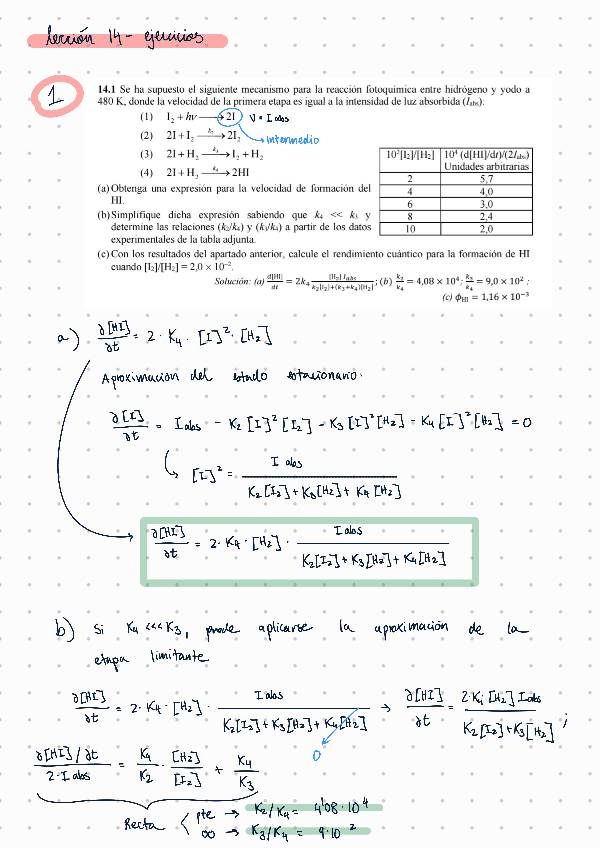 Lección 14 - ejercicios
1
14.1 Se ha supuesto el siguiente mecanismo para la reacción fotoquímica entre hidrógeno y yodo a
480 K, donde la velocidad de la primera etapa es igual a la intensidad de luz absorbida (Iabs):
(1) I₂ + hν ⟶ 2I V = I abs
(2) 2I + I₂ —k₂→ 2I₂ intermedio
(3) 2I + H₂ —k₃→ I₂ + H₂
(4) 2I + H₂ —k₄→ 2HI
(a) Obtenga una expresión para la velocidad de formación del
HI.
(b) Simplifique dicha expresión sabiendo que k₄ << k₃ y
determine las relaciones (k₂/k₄) y (k₃/k₄) a partir de los datos
experimentales de la tabla adjunta.
10²[I₂]/[H₂] 10⁴ (d[HI]/dt)/(2Iabs)
Unidades arbitrarias
2 5,7
4 4,0
6 3,0
8 2,4
10 2,0
(c) Con los resultados del apartado anterior, calcule el rendimiento cuántico para la formación de HI
cuando [I₂]/[H₂] = 2,0 × 10⁻².
Solución: (a) d[HI]/dt = 2k₄ [H₂] Iabs / k₂[I₂]+(k₃+k₄)[H₂] ; (b) k₂/k₄ = 4,08 × 10⁴ ; k₃/k₄ = 9,0 × 10² ;
(c) ϕHI = 1,16 × 10⁻³
a) ∂[HI]/∂t = 2 · K₄ · [I]² · [H₂]
Aproximación del estado estacionario.
∂[I]/∂t = I abs - K₂ [I]² [I₂] - K₃ [I]² [H₂] - K₄ [I]² [H₂] = 0
↳ [I]² = I abs / K₂[I₂] + K₃[H₂] + K₄ [H₂]
∂[HI]/∂t = 2 · K₄ · [H₂] · I abs / K₂[I₂] + K₃[H₂] + K₄[H₂]
b) Si K₄ <<< K₃, puede aplicarse la aproximación de la
etapa limitante
∂[HI]/∂t = 2 · K₄ · [H₂] · I abs / K₂[I₂] + K₃[H₂] + K₄[H₂] → ∂[HI]/∂t = 2·K₄ [H₂] I abs / K₂[I₂]+K₃[H₂] ;
0
∂[HI]/∂t / 2·I abs = K₄/K₂ · [H₂]/[I₂] + K₄/K₃
Recta < pte → K₂/K₄ = 4'08 · 10⁴
∞ → K₃/K₄ = 9·10²